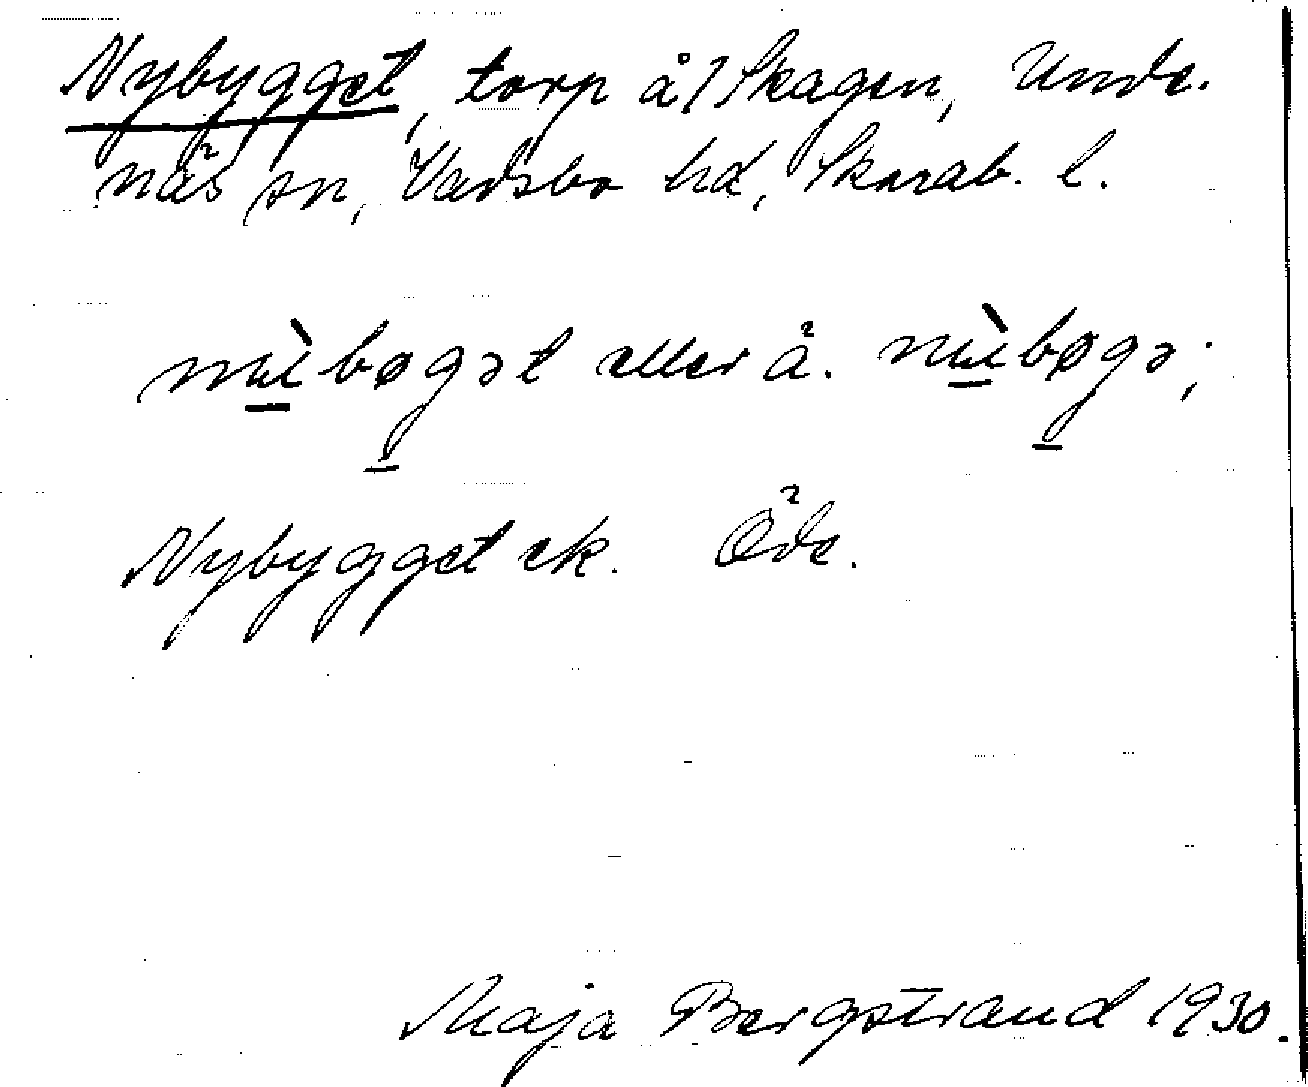 Nybygget, torp å/ Skagen, Unde-
näs sn, Vadsbo hd, Skarab. l.
nùbøgət eller å. nùbøgə;
Nybygget ek. Öde.
Maja Bergstrand 1930.